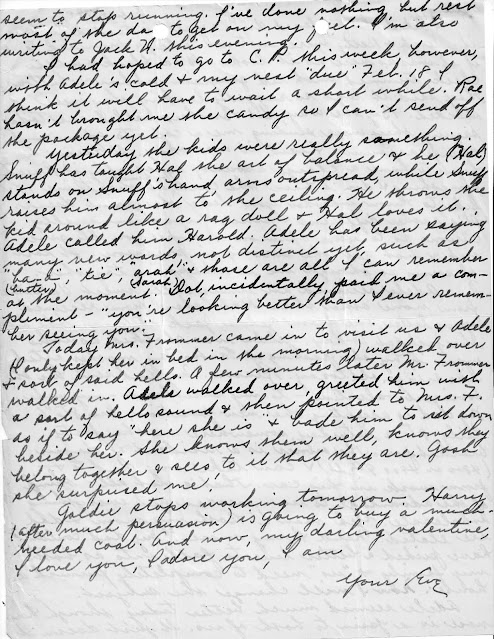 seem to stop running. I've done nothing but rest
most of the da to get on my feet. I'm also
writing to Jack N. this evening.
I had hoped to go to C. P. this week, however,
with Adele's cold & my rest "due" Feb. 18 I
think it will have to wait a short while. Rae
hasn't brought me the candy so I can't send off
the package yet.
Yesterday the kids were really something.
Snuff has taught Hal the art of balance & he (Hal)
stands on Snuff's hand, arms outspread, while Snuff
raises him almost to the ceiling. He throws the
kid around like a rag doll & Hal loves it.
Adele called him Harold. Adele has been saying
many new words, not distinct yet, such as
"ba-a", "tie", "arah" & those are all I can remember
(butter) (Sarah)
at the moment. Dot, incidentally, paid me a com-
pliment - "you're looking better than I ever remem-
ber seeing you."
Today Mrs. Frommer came in to visit us & Adele
(I only kept her in bed in the morning) walked over
& sort of said hello. A few minutes later Mr. Frommer
walked in. Adele walked over, greeted him with
a sort of hello sound & then pointed to Mrs. F.
as if to say "here she is" & bade him to sit down
beside her. She knows them well, knows they
belong together & sees to it that they are. Gosh
she surprised me!
Goldie stops working tomorrow. Harry
(after much persuasion) is going to buy a much-
needed coat. And now, my darling valentine,
I love you, I adore you, I am
Your Eve